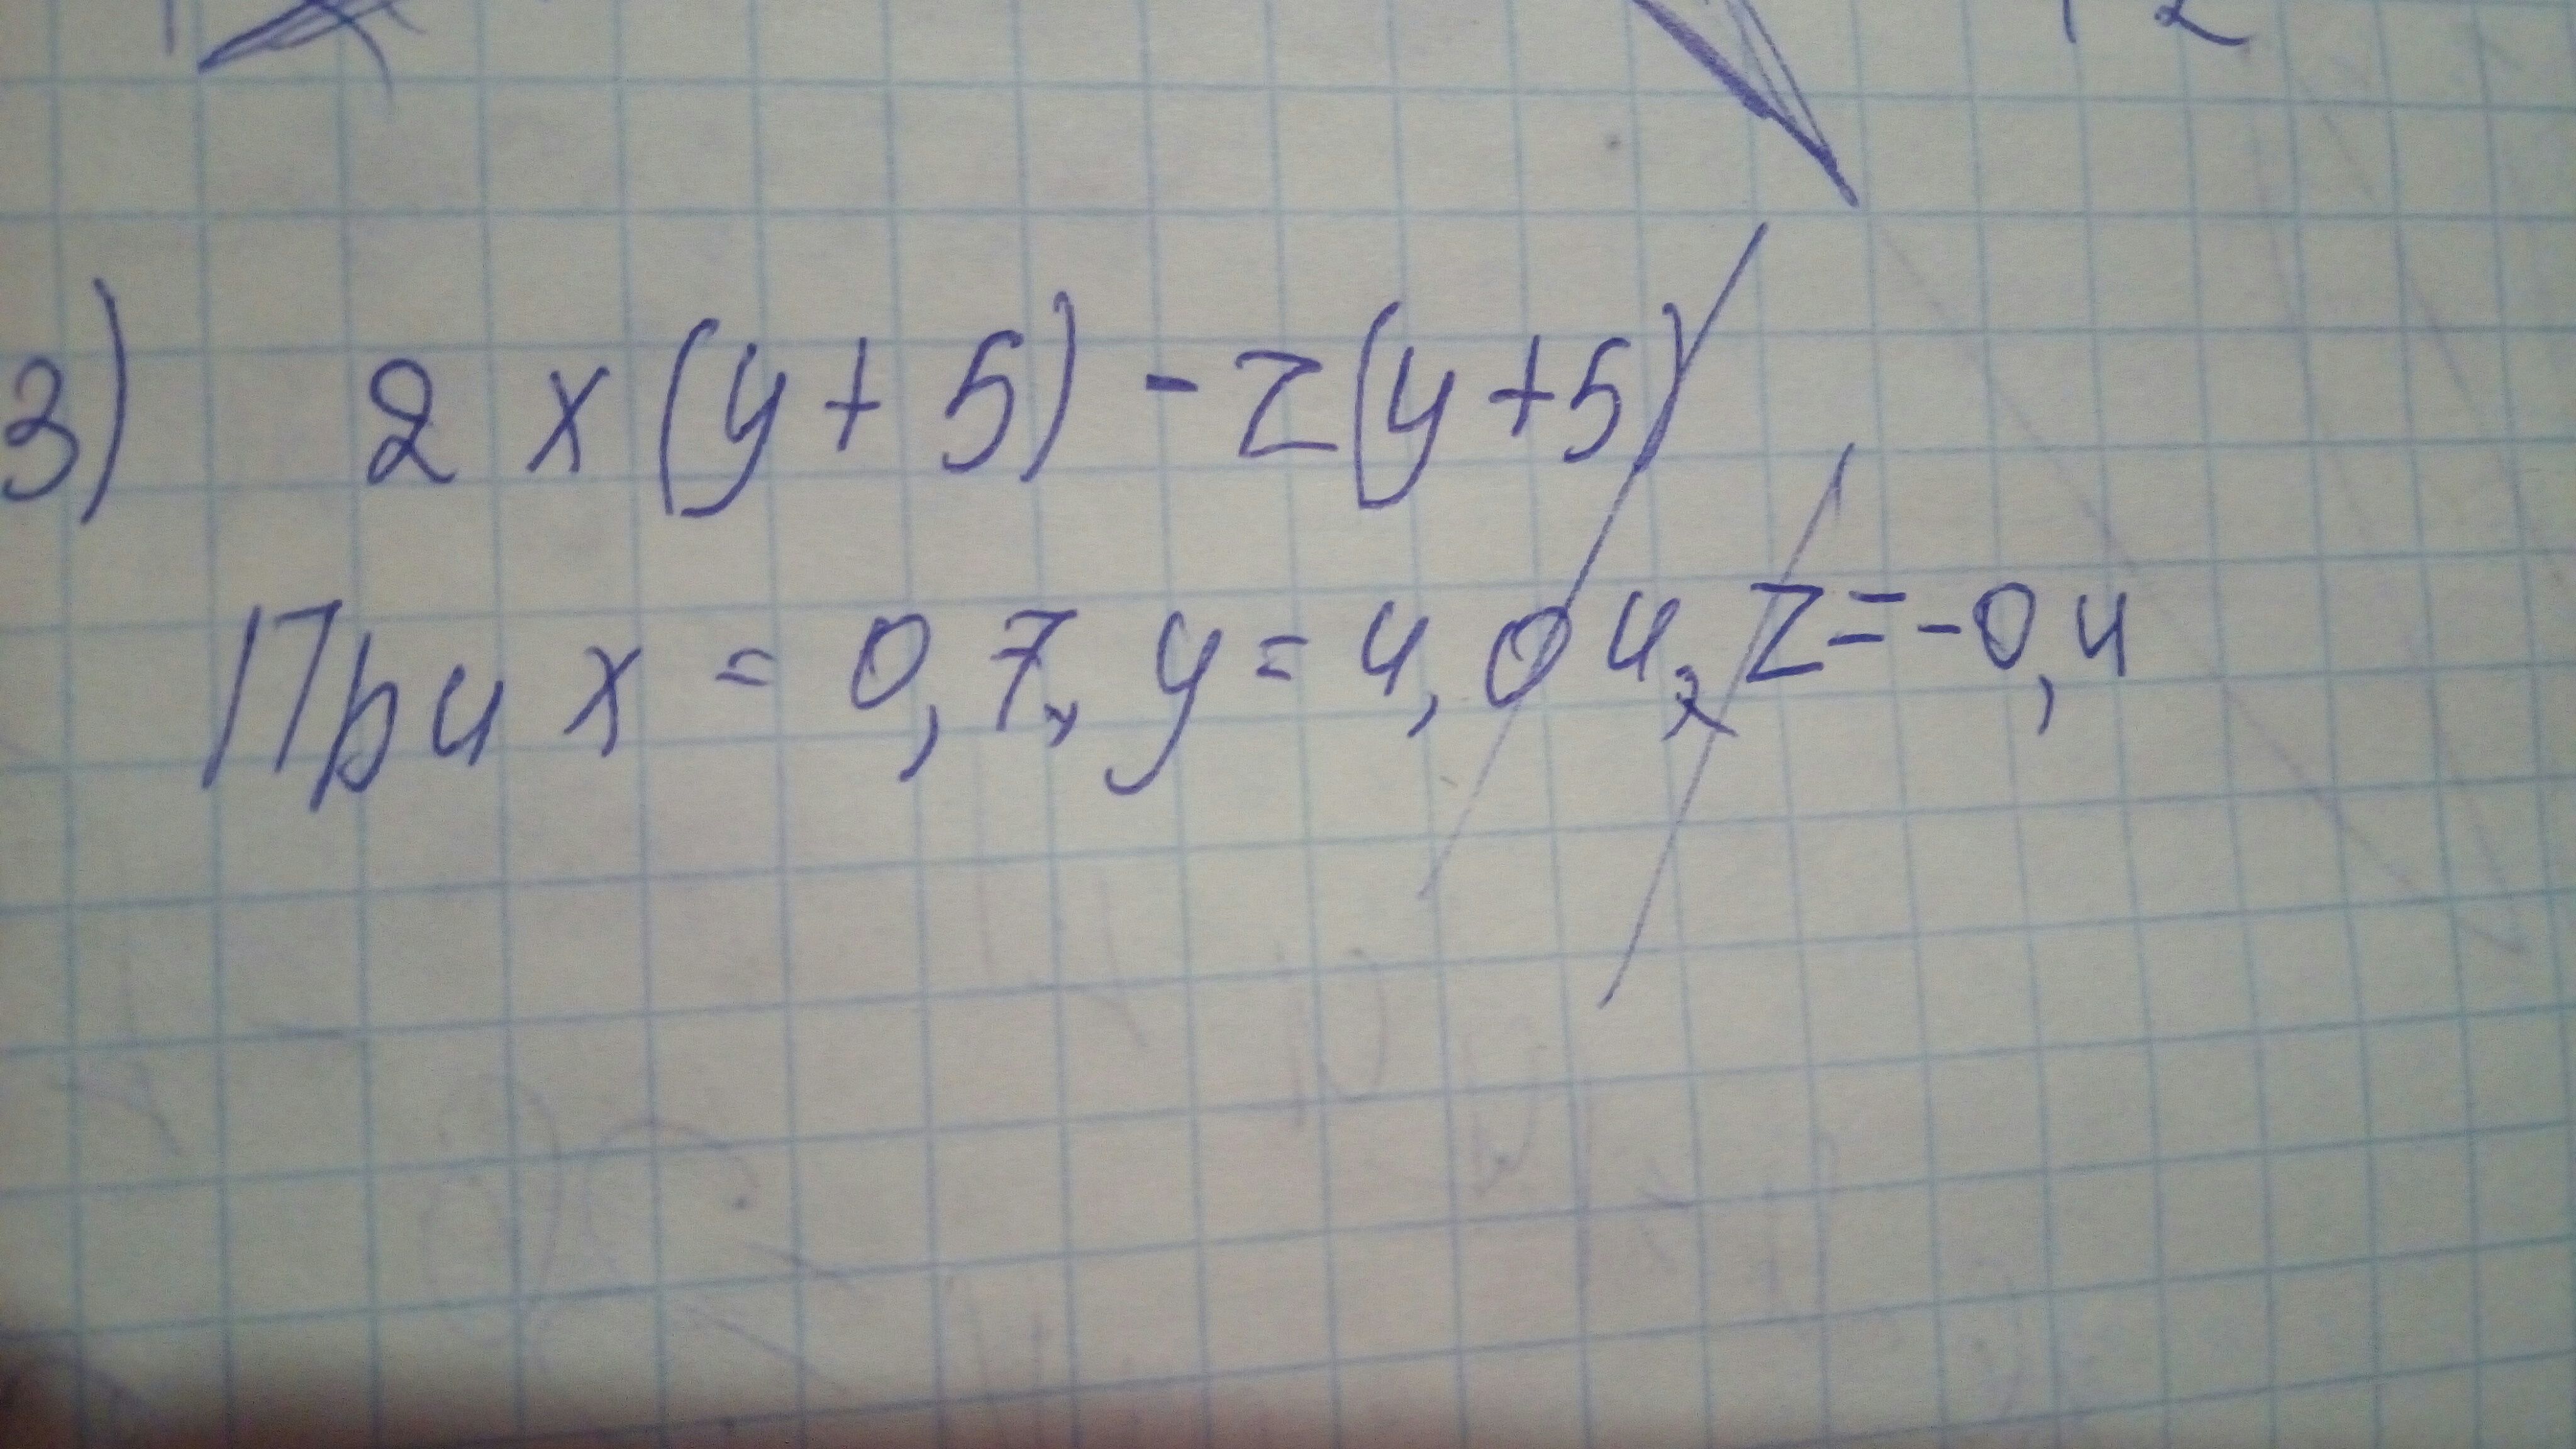 3) 2x(y+5)-z(y+5)
При x=0,7, y=4,04, z=-0,4